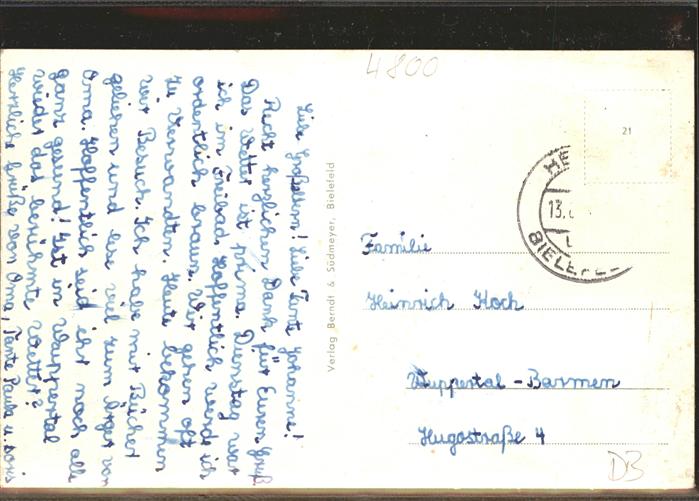 4800
Liebe Großeltern! Liebe Tante Johanne!
Recht herzlichen Dank für Euren Gruß
Das Wetter ist prima. Dienstag war
ich im Freibad. Hoffentlich werde ich
ordentlich braun. Wir gehen oft
zu Verwandten. Heute bekommen
wir Besuch. Ich habe mir Bücher
geliehen und lese viel zum Ärger von
Oma. Hoffentlich seid ihr noch alle
ganz gesund! Ist in Wuppertal
wieder das berühmte Wetter?
Herzliche Grüße von Oma, Tante Paula u. Doris
Verlag Berndt & Südmeyer, Bielefeld
21
HE
13.
BIELEFEL
Familie
Heinrich Koch
Wuppertal-Barmen
Hugostraße 4
DB